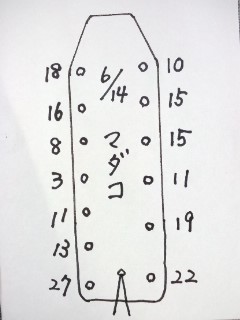 6/14
マダコ
18 10
16 15
8 15
3 11
11 19
13
27 22